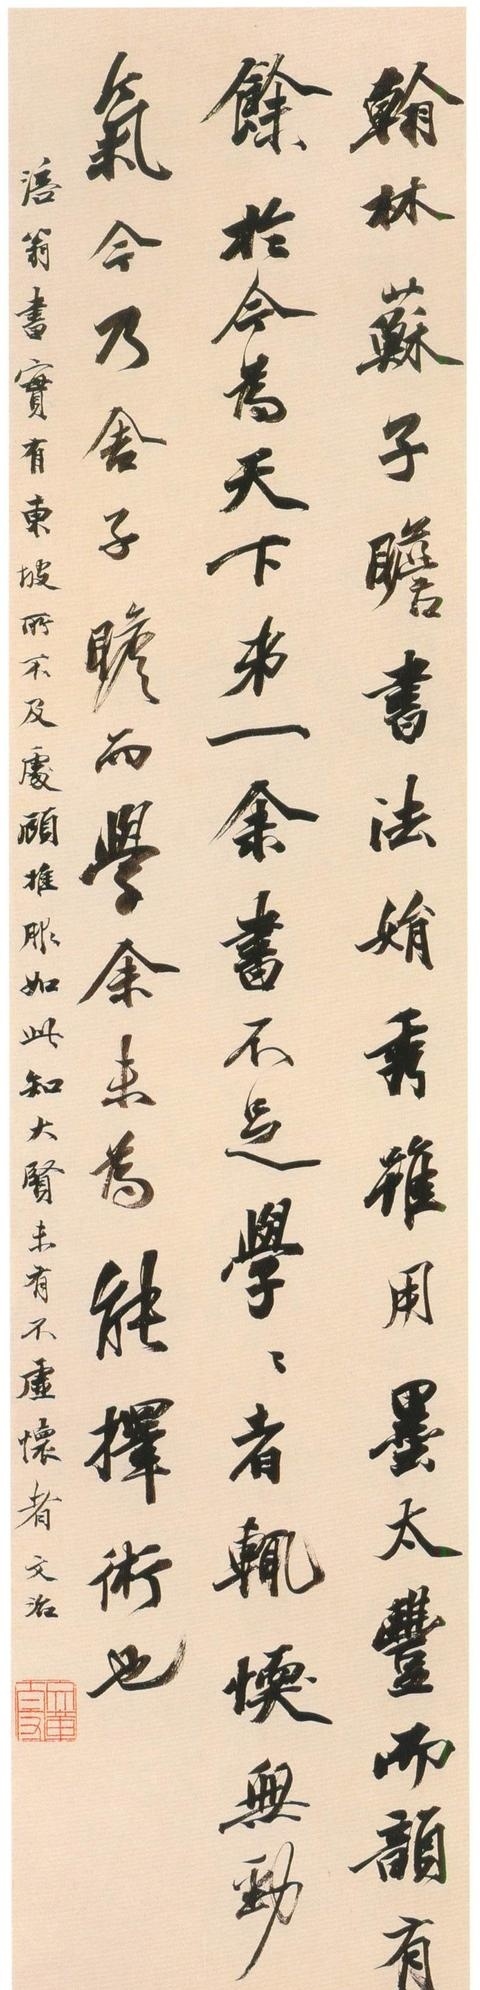 翰林蘇子瞻書法娟秀雖用墨太豐而韻有
餘於今為天下弟一余書不足學〻者輒愞無勁
氣今乃舍子瞻而學余未為能擇術也
涪翁書實有東坡所不及處顧推服如此知大賢未有不虛懷者文治